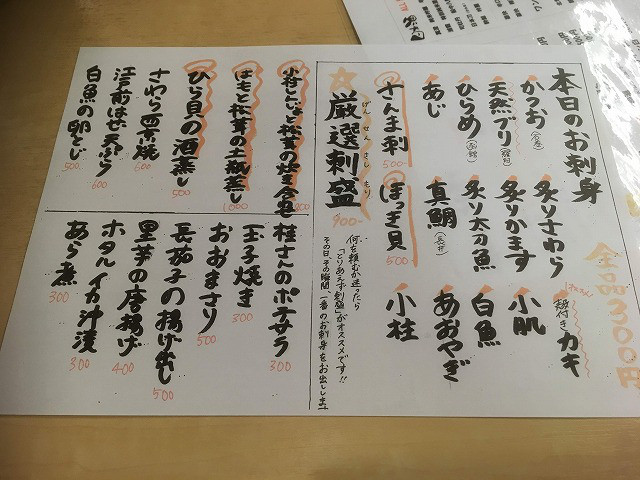 本日のお刺身
全品300円
かつお
炙りさわら
殻付きカキ
天然ブリ
炙りかます
小肌
ひらめ
炙り太刀魚
白魚
あじ
真鯛
あおやぎ
さんま刺
500-
ほっき貝
500
小柱
げんせんさしもり
厳選刺盛
900-
何を頼むか迷ったら
「とりあえず刺盛」がオススメです!!
その日、その瞬間、一番のお刺身をお出しします
はもと松茸の土瓶蒸し
1000
ひら貝の酒蒸し
500
さわら西京焼
600
江戸前はぜ天ぷら
600
白魚の卵とじ
500
桂さんのポテサラ
300
玉子焼き
300
おおまさり
500
長茄子の揚げ出し
500
里芋の唐揚げ
400
ホタルイカ汁漬
あら煮
300